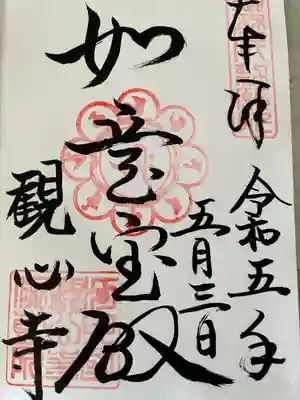 奉拝
令和五年
五月三日
如意宝殿
觀心寺